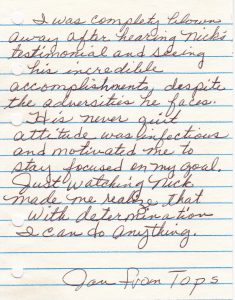 I was completely blown
away after hearing Nick's
testimonial and seeing
his incredible
accomplishments, despite
the adversities he faces.
His never quit
attitude was infectious
and motivated me to
stay focused on my goal.
Just watching Nick
made me realize that
with determination
I can do anything.
from Tops